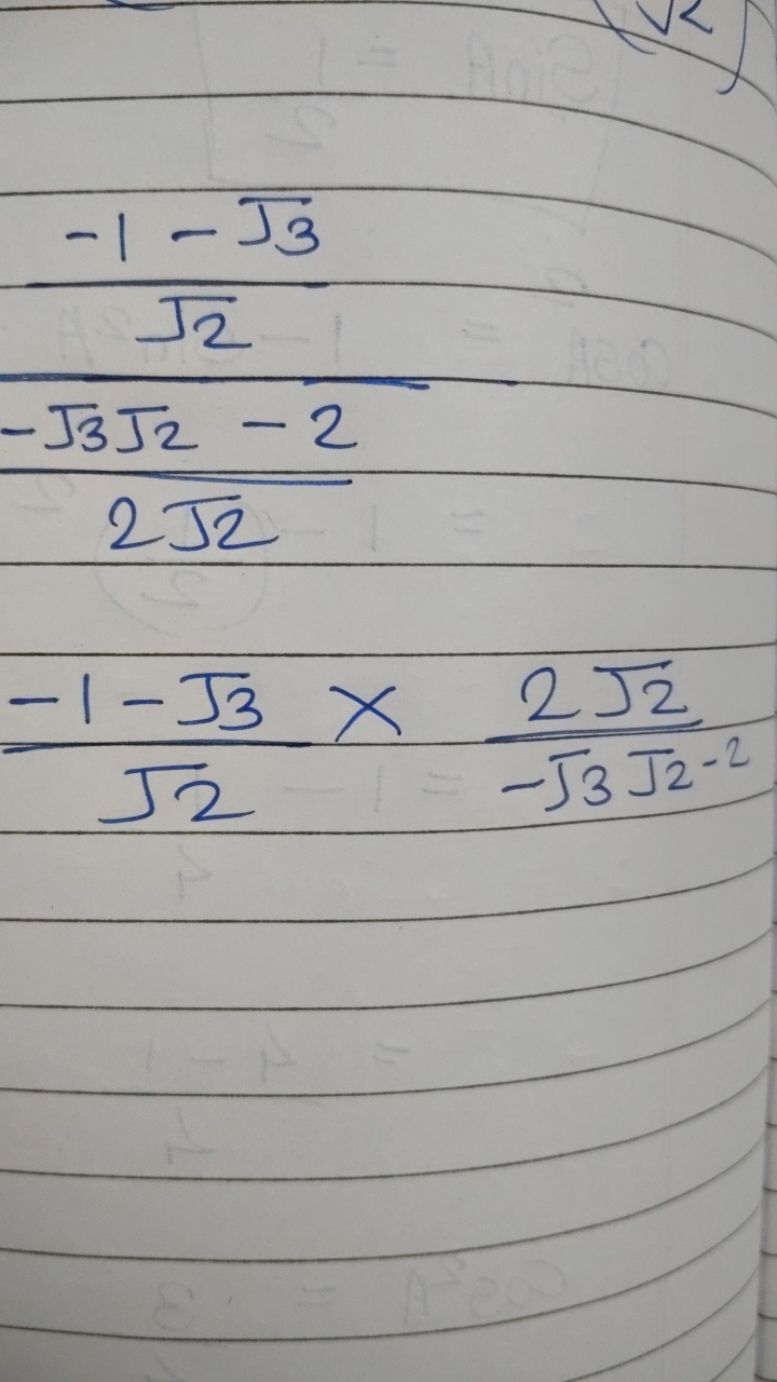 √2)
-1 - √3
√2
-√3√2 - 2
2√2
-1 - √3 × 2√2
√2 -√3√2-2